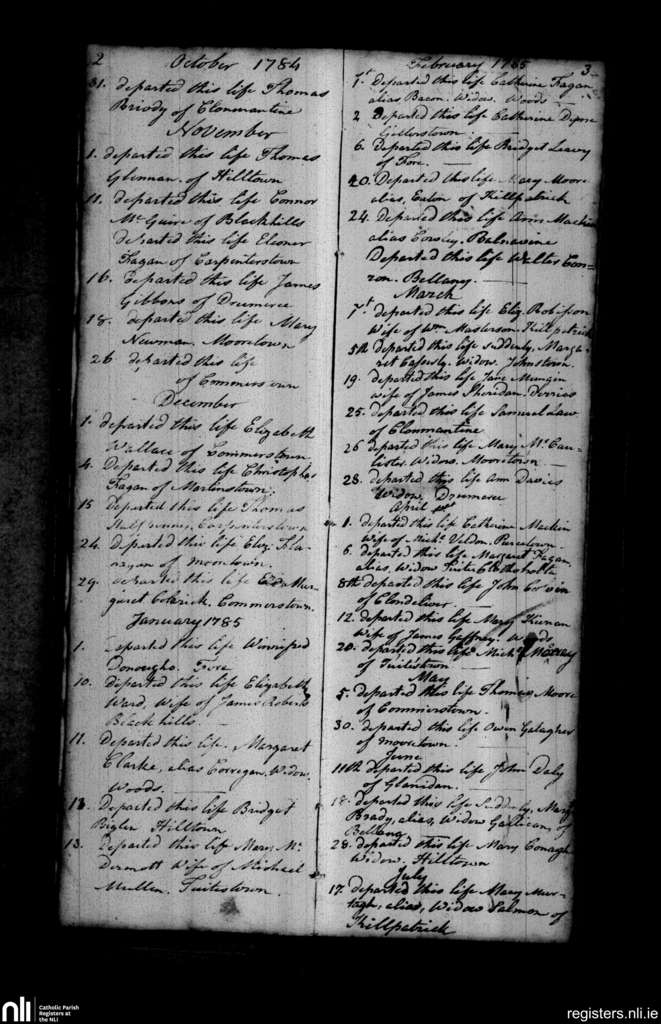 2 October 1784
31. departed this life Thomas
Briody of Clonmantine
November
1. departed this life Thomas
Glennan of Hilltown
11. departed this life Connor
Mc Guire of Blackhills
departed this life Eleoner
Fagan of Carpenterstown
16. departed this life James
Gibbons of Drumcree
18. departed this life Mary
Newman, Mooretown
26 departed this life
of Commerstown
December
1. departed this life Elizabeth
Wallace of Commerstown
4. Departed this life Christopher
Fagan of Martinstown.
15 Departed this life Thomas
Carpenterstown
24. departed this life Eliz. Fla-
nagan of moortown.
29. departed this life Mar-
garet Commerstown.
January 1785
1. departed this life Winnifred
Donougho. Fore
10. departed this life Elizabeth
Ward, Wife of James Roberts
Blackhills.
11. Departed this life. Margaret
Clarke, alias Corregan. Widow.
Woods.
13. Departed this life Bridget
Hilltown
13. Departed this life Mary Mc
Dermott Wife of Michael
Mullen. Tuitestown.
February 1785 3
1st Departed this life Catherine Fagan
alias Bacon. Widow. Woods
2 Departed this life Catherine
Gillerstown.
6. Departed this life Bridget Leavy
of Fore.
20. Departed this life Mary Moore
alias, Eaton of Killpatrick
24. Departed this life Ann Mackin
alias Balnavine
Departed this life Walter Con=
ron. Bellany.
March
departed this life Eliz. Robinson
Wife of Wm. Masterson Killpatrick
5th departed this life suddenly, Marga-
ret Casserly. Widow. Johnstown.
19. departed this life Jane
wife of James Sheridan. Derries
25. departed this life Samuel Law
of Clonmantine
26 departed this life Mary Mc Cau-
lister Widow. Mooretown.
28. departed this life Ann Davies
Widow, Drumcree
April
1. departed this life Catherine Mackin
Wife of Nichs. Veldon. Purcelown.
6. departed this life Margaret Fagan,
alias, Widow Tuite.
8th departed this life John
of Clondeliver
12. departed this life Mary Kiernan
Wife of James Gaffney. Woods
20. departed this life Michl.
of Tuitestown
May
5. departed this life Thomas Moore
of Commerstown.
30. departed this life Owen Galagher
of moortown.
June
11th departed this life John Daly
of Glanidan.
18. departed this life suddenly, Mary
Brady, alias, Widow of
Bellany
28. departed this life Mary Conagh
Widow. Hilltown
July
17. departed this life Mary Mur-
tagh, alias, Widow Salmon of
Killpatrick
nli
Catholic Parish
Registers at
the NLI
registers.nli.ie